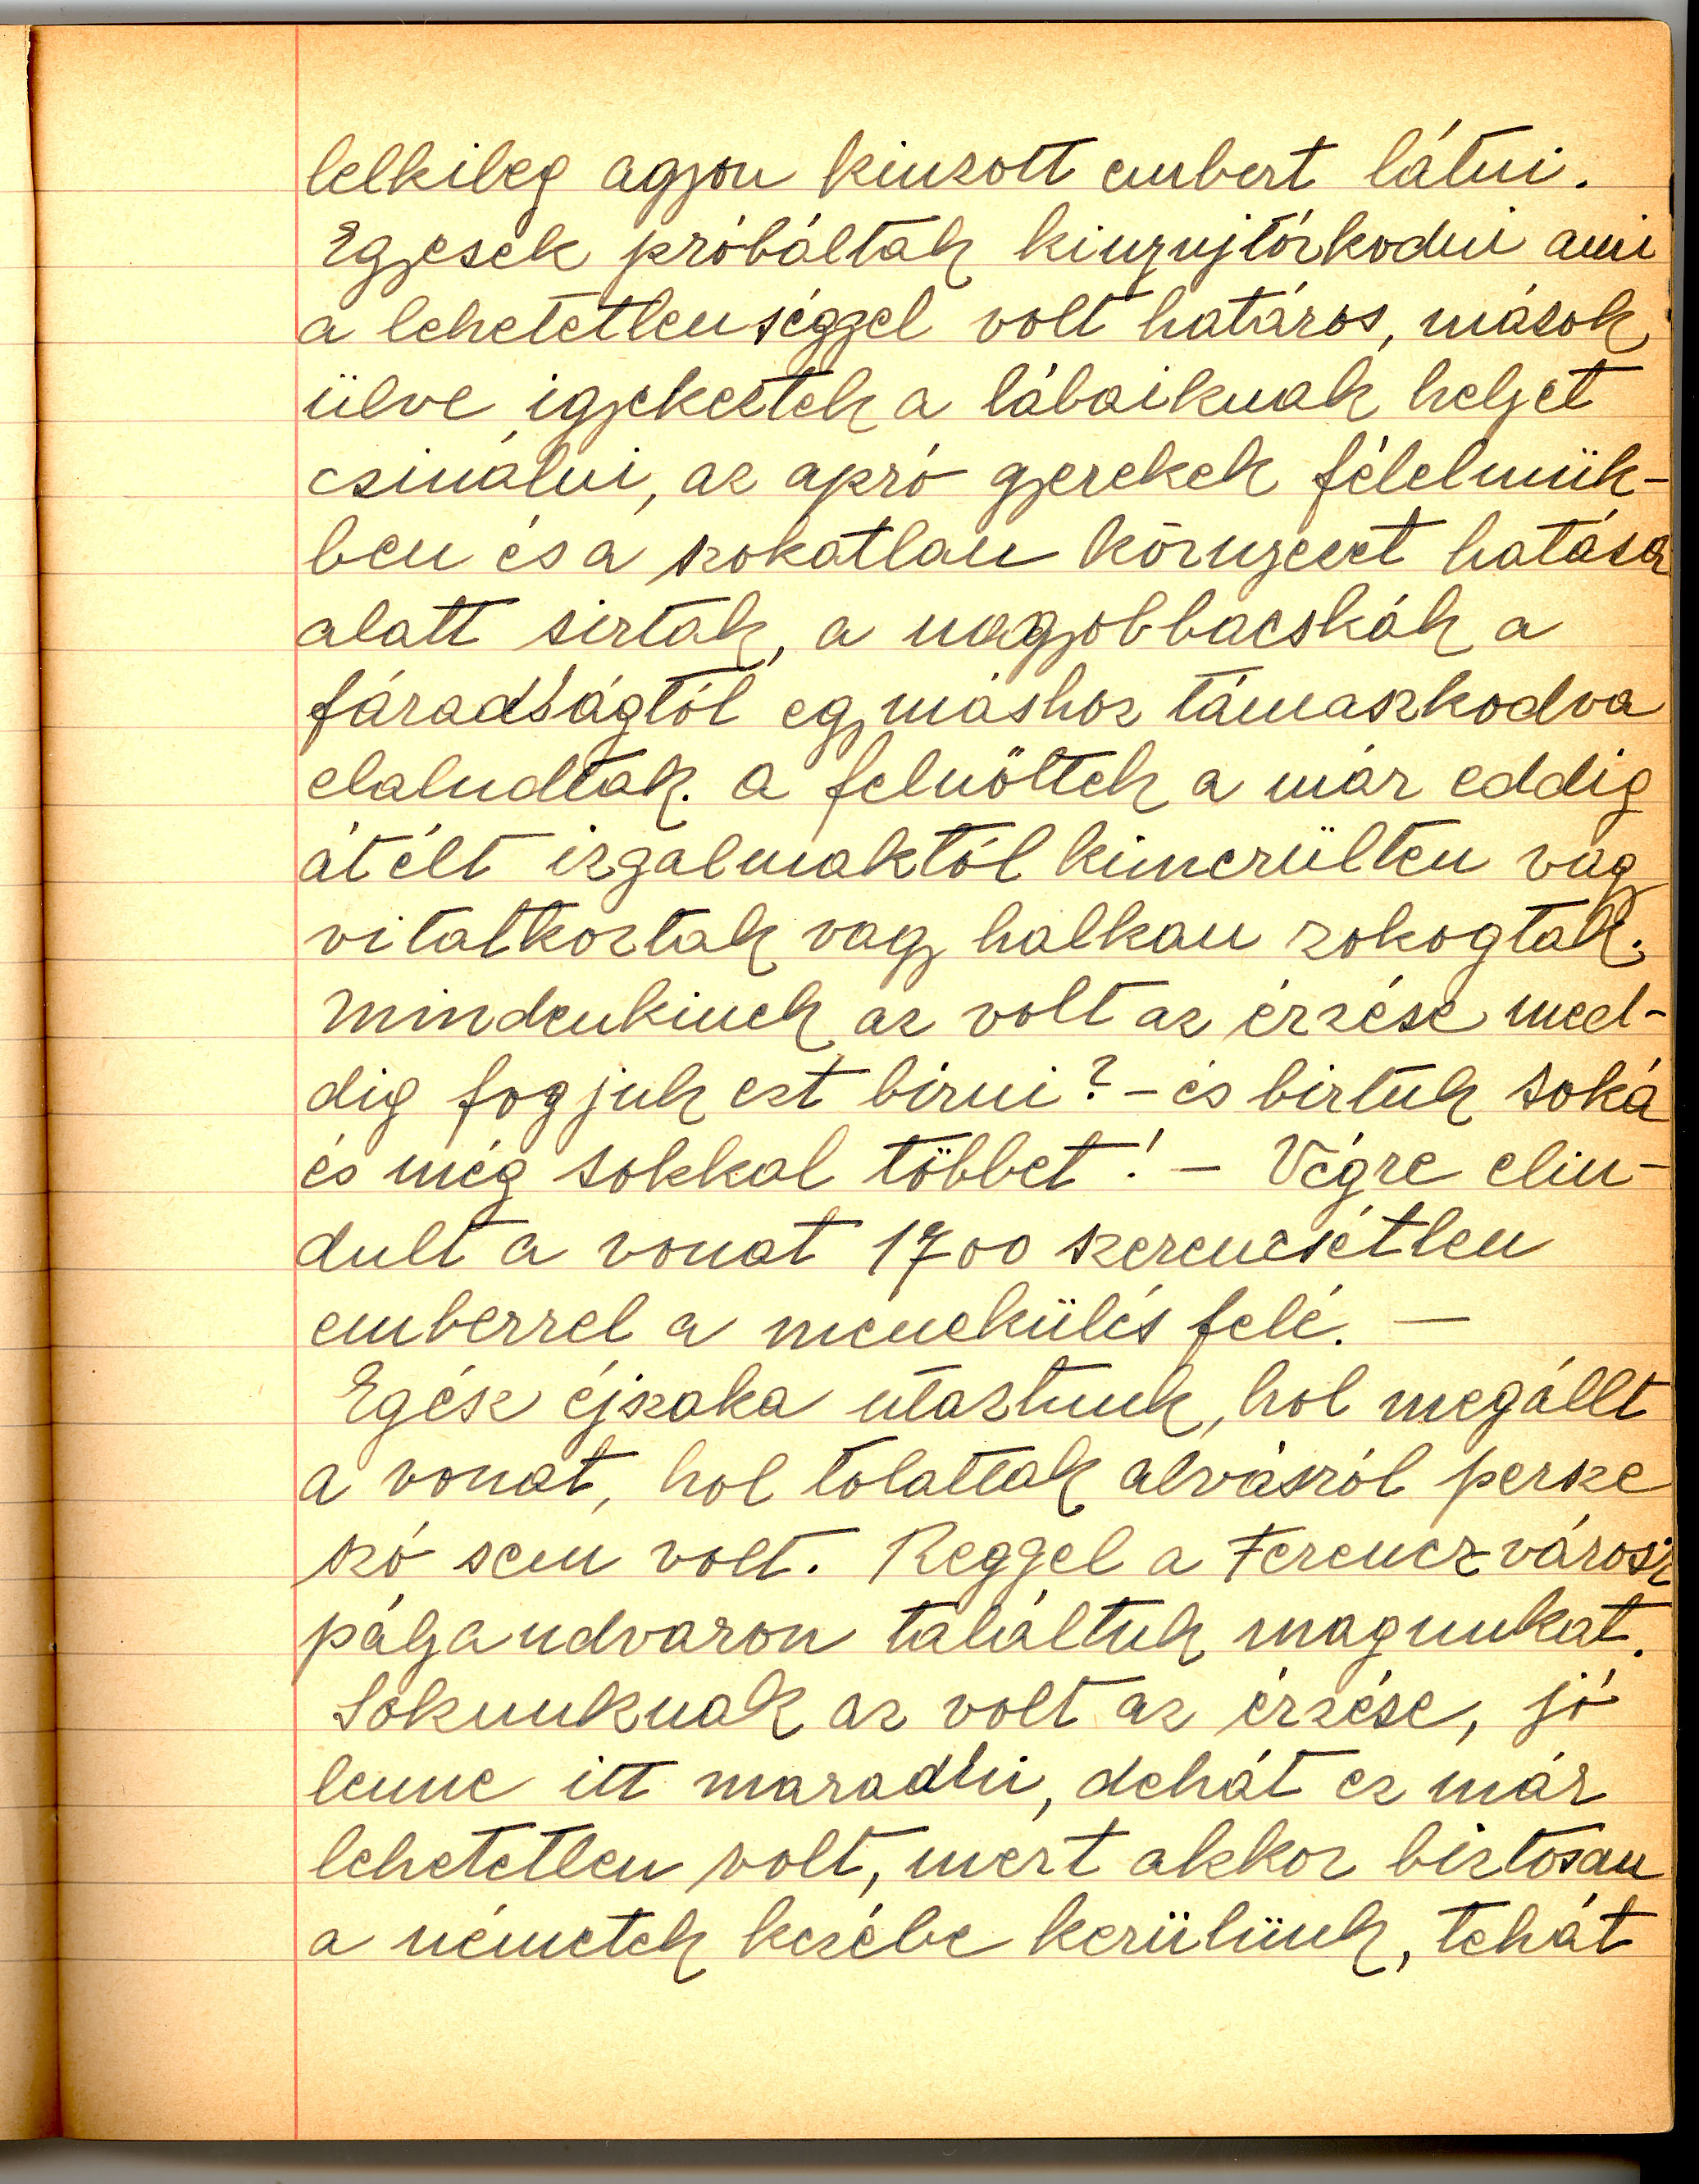 lelkileg agyon kinzott embert látni.
Egyesek próbáltak kinyujtózkodni ami
a lehetetlenséggel volt határos, mások
ülve igyekeztek a lábaiknak helyet
csinálni, az apró gyerekek félelmük-
ben és a szokatlan környezet hatása
alatt sirtak, a nagyobbacskák a
fáradságtól egymáshoz támaszkodva
elaludtak. A felnőttek a már eddig
átélt izgalmaktól kimerülten vagy
vitatkoztak vagy halkan zokogtak.
Mindenkinek az volt az érzése med-
dig fogjuk ezt birni? - és birtuk soká
és még sokkal többet! - Végre elin-
dult a vonat 1700 szerencsétlen
emberrel a menekülés felé. —
Egész éjszaka utaztunk, hol megállt
a vonat, hol tolattak alvásról persze
szó sem volt. Reggel a Ferenczvárosi
pályaudvaron találtuk magunkat.
Sokunknak az volt az érzése, jó
lenne itt maradni, dehát ez már
lehetetlen volt, mert akkor biztosan
a németek kezébe kerülünk, tehát